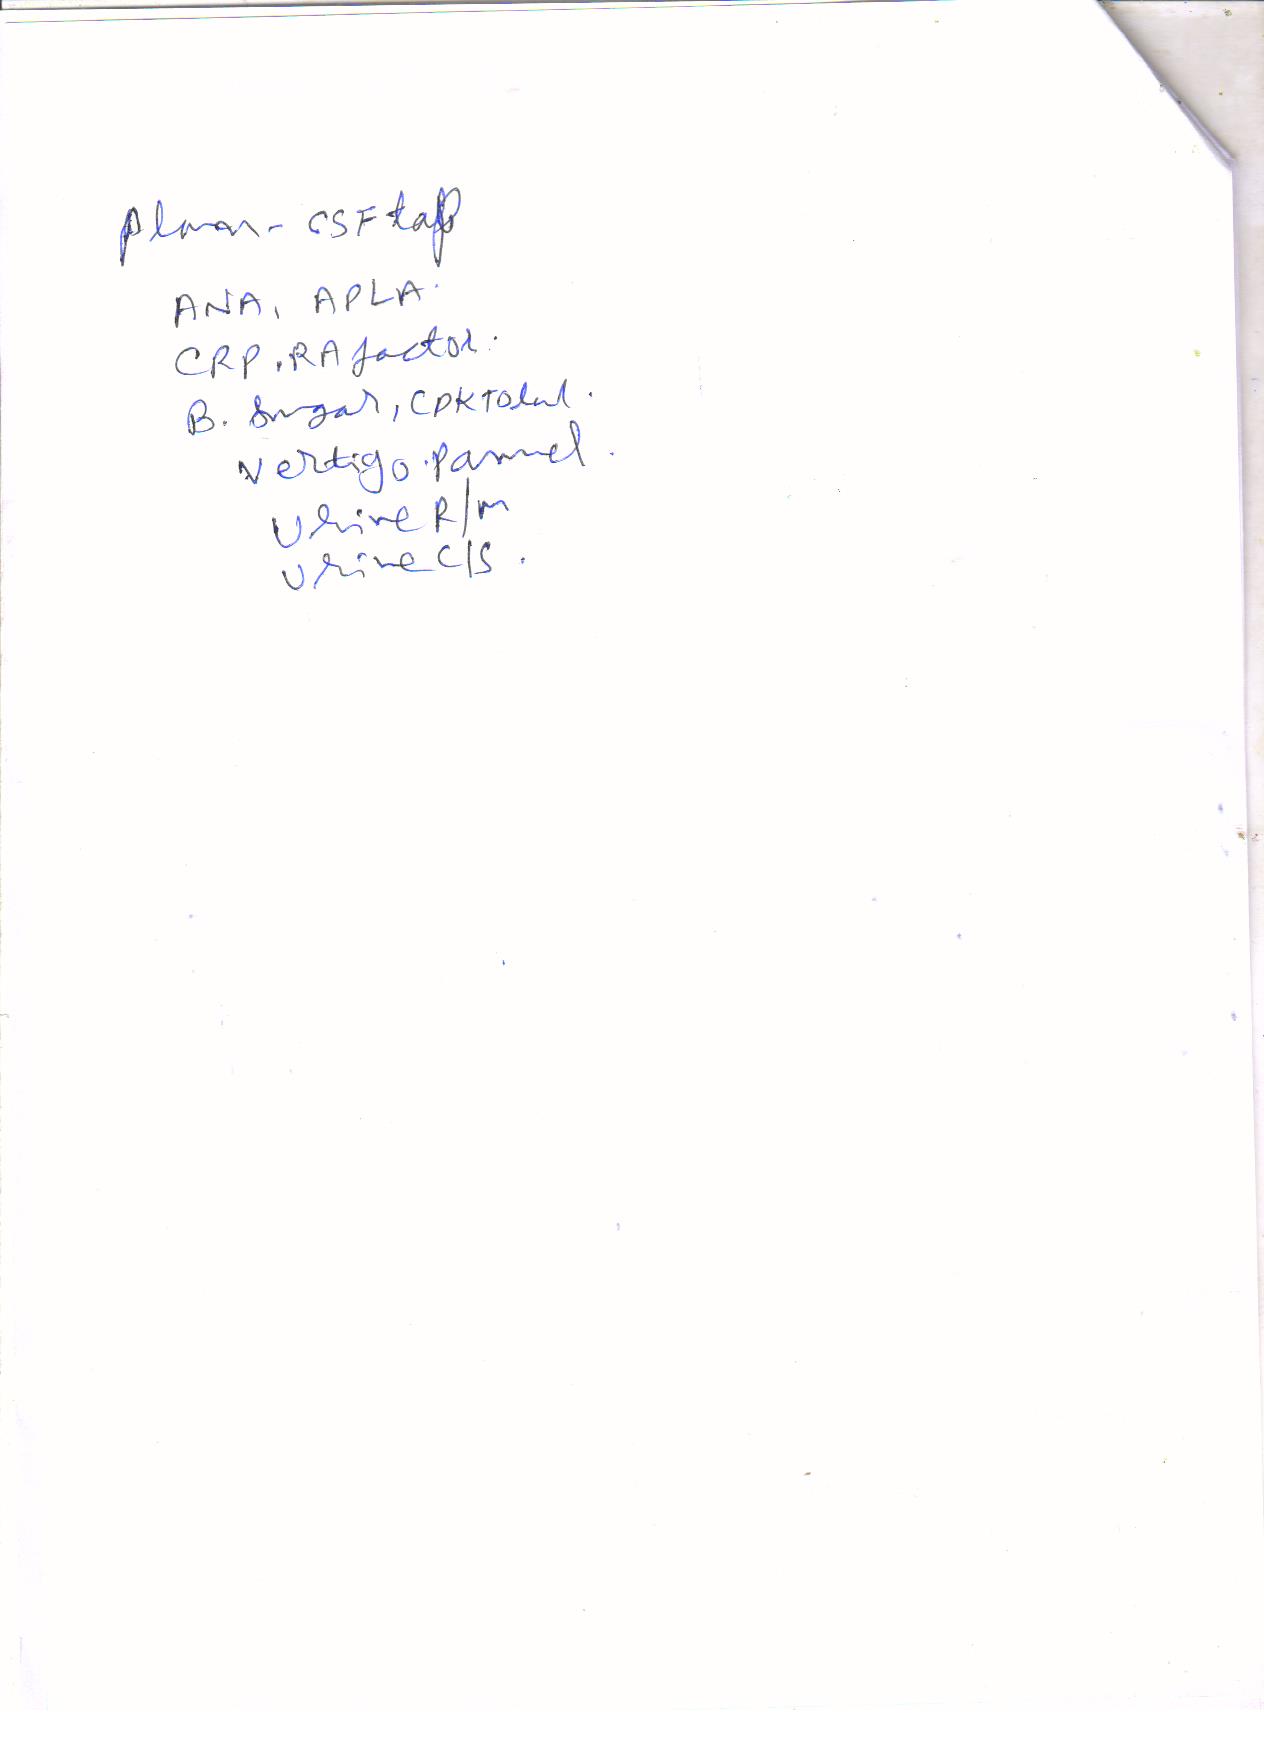 Plan - CSF tap
ANA, APLA.
CRP, RA factor.
B. Sugar, CPK Total.
Vertigo. Pannel.
Urine R/m
Urine C/S.